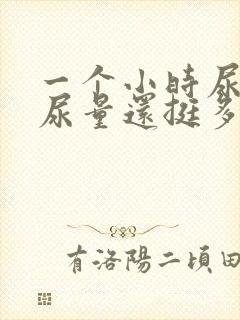 一个小時尿
尿量還挺多
有洛陽二頃田